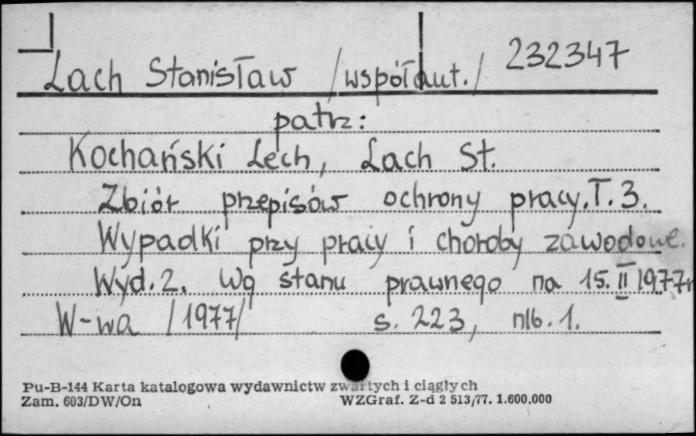 Lach Stanisław /współaut./ 232347
patrz:
Kochański Lech, Lach St.
Zbiór przepisów ochrony pracy. T. 3.
Wypadki przy pracy i choroby zawodowe.
Wyd. 2. Wg stanu prawnego na 15. II 1977r
W-wa /1977/ s. 223, nlb. 1.
Pu-B-144 Karta katalogowa wydawnictw zwartych i ciągłych
Zam. 603/DW/On WZGraf. Z-d 2 513/77. 1.600.000